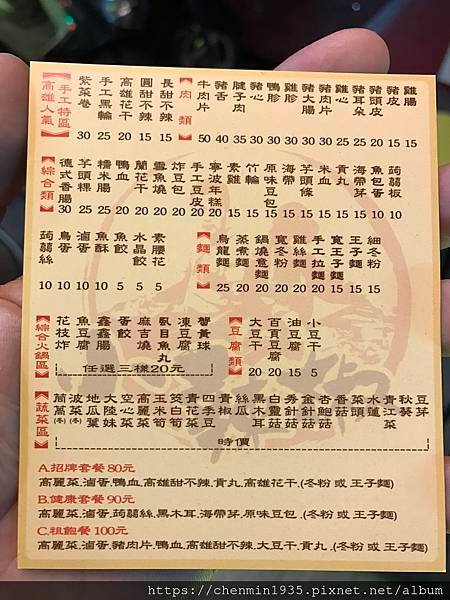 高雄人氣
手工特區
紫菜卷 30
手工黑輪 25
高雄花干 20
圓甜不辣 15
長甜不辣 15
肉類
牛肉片 50
豬舌 40
腱子肉 35
豬心 30
鴨胗 30
雞胗 30
豬大腸 30
豬肉片 30
雞心 25
豬耳朵 25
豬頭皮 20
豬皮 15
雞腸 15
綜合類
德式香腸 30
芋頭粿 25
糯米腸 25
鴨血 20
蘭花干 20
雪魚燒 20
炸豆包 20
手工豆皮 20
寧波年糕 20
素雞 15
竹輪 15
原味豆包 15
海帶 15
芋頭條 15
米血 15
貢丸 15
海帶芽 15
魚包蛋 10
蒟蒻板 10
蒟蒻絲 10
鳥蛋 10
滷蛋 10
魚酥 10
魚餃 5
水晶餃 5
素腰花 5
麵類
烏龍麵 25
蒸煮麵 20
鍋燒意麵 20
寬冬粉 20
雞絲麵 20
手工拉麵 20
寬王子麵 20
王子麵 15
細冬粉 15
綜合火鍋區
花枝炸
魚豆腐
鑫鑫腸
蛋餃
麻吉燒
虱目魚丸
凍豆腐
蟹黃球
任選三樣20元
豆腐類
大豆干 20
百頁豆腐 20
油豆腐 15
小豆干 5
蔬菜區
茼萵(冬)
菠菜(冬)
地瓜葉
大陸妹
空心菜
高麗菜
玉米筍
茭白筍
青花菜
四季豆
青椒
絲瓜
黑木耳
白靈菇
秀針菇
金針菇
杏鮑菇
香菇
菜頭
水蓮
青江菜
秋葵
豆芽
時價
A.招牌套餐 80元
高麗菜.滷蛋.鴨血.高雄甜不辣.貢丸.高雄花干.(冬粉 或 王子麵)
B.健康套餐 90元
高麗菜.滷蛋.蒟蒻絲.黑木耳.海帶芽.原味豆包.(冬粉 或 王子麵)
C.粗飽餐 100元
高麗菜.滷蛋.豬肉片.鴨血.高雄甜不辣.大豆干.貢丸.(冬粉 或 王子麵)
https://chenmin1935.pixnet.net/album